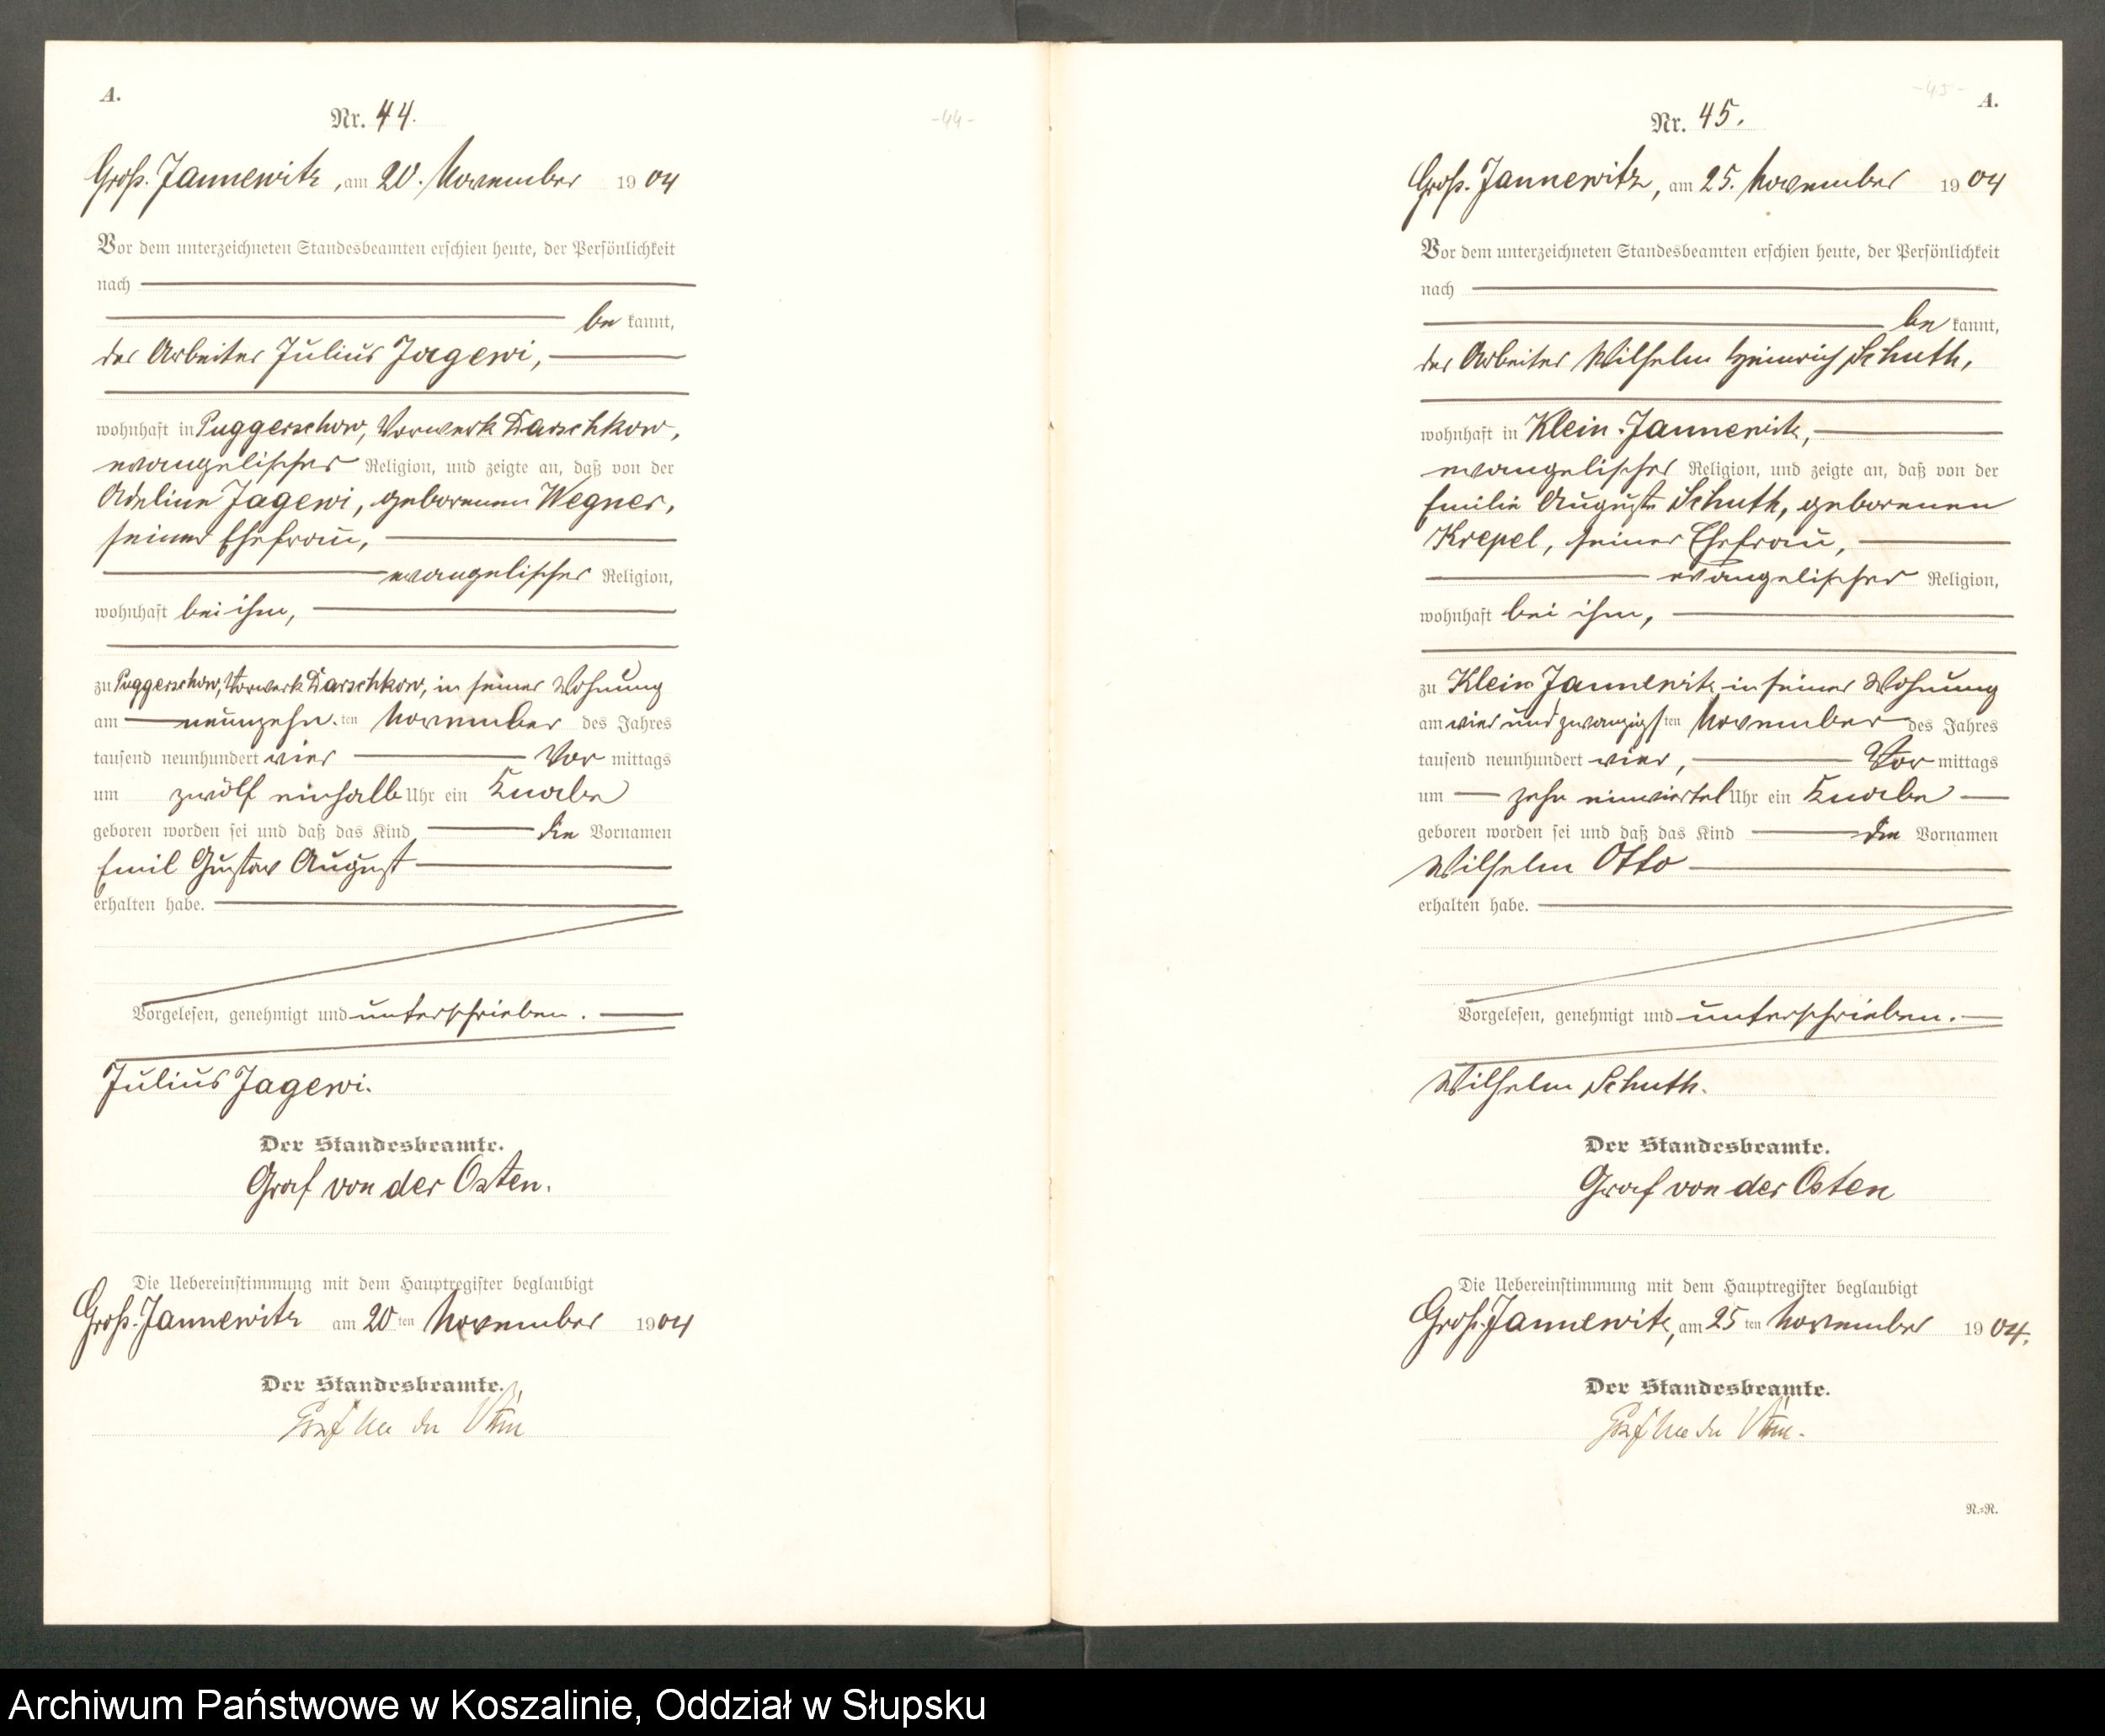 A.
Nr. 44.
-44-
Groß. Jannewitz, am 20. November 1904
Vor dem unterzeichneten Standesbeamten erschien heute, der Persönlichkeit
nach
be kannt,
der Arbeiter Julius Jagewi,
wohnhaft in Puggerschow, Vorwerk Darschkow,
evangelischer Religion, und zeigte an, daß von der
Adeline Jagewi, geborenen Wegner,
seiner Ehefrau,
evangelischer Religion,
wohnhaft bei ihm,
zu Puggerschow, Vorwerk Darschkow, in seiner Wohnung
am neunzehn ten November des Jahres
tausend neunhundert vier Vor mittags
um zwölf einhalb Uhr ein Knabe
geboren worden sei und daß das Kind die Vornamen
Emil Gustav August
erhalten habe.
Vorgelesen, genehmigt und unterschrieben.
Julius Jagewi.
Der Standesbeamte.
Graf von der Osten.
Die Uebereinstimmung mit dem Hauptregister beglaubigt
Groß. Jannewitz am 20 ten November 1904
Der Standesbeamte.
Graf von der Osten
-45-
A.
Nr. 45.
Groß. Jannewitz, am 25. November 1904
Vor dem unterzeichneten Standesbeamten erschien heute, der Persönlichkeit
nach
be kannt,
der Arbeiter Wilhelm Heinrich Schuth,
wohnhaft in Klein-Jannewitz,
evangelischer Religion, und zeigte an, daß von der
Emilie Auguste Schuth, geborenen
Krepel, seiner Ehefrau,
evangelischer Religion,
wohnhaft bei ihm,
zu Klein Jannewitz in seiner Wohnung
am vier und zwanzigs ten November des Jahres
tausend neunhundert vier, Vor mittags
um zehn einviertel Uhr ein Knabe
geboren worden sei und daß das Kind die Vornamen
Wilhelm Otto
erhalten habe.
Vorgelesen, genehmigt und unterschrieben.
Wilhelm Schuth.
Der Standesbeamte.
Graf von der Osten
Die Uebereinstimmung mit dem Hauptregister beglaubigt
Groß. Jannewitz, am 25 ten November 1904.
Der Standesbeamte.
Graf von der Osten.
N.=R.
Archiwum Państwowe w Koszalinie, Oddział w Słupsku